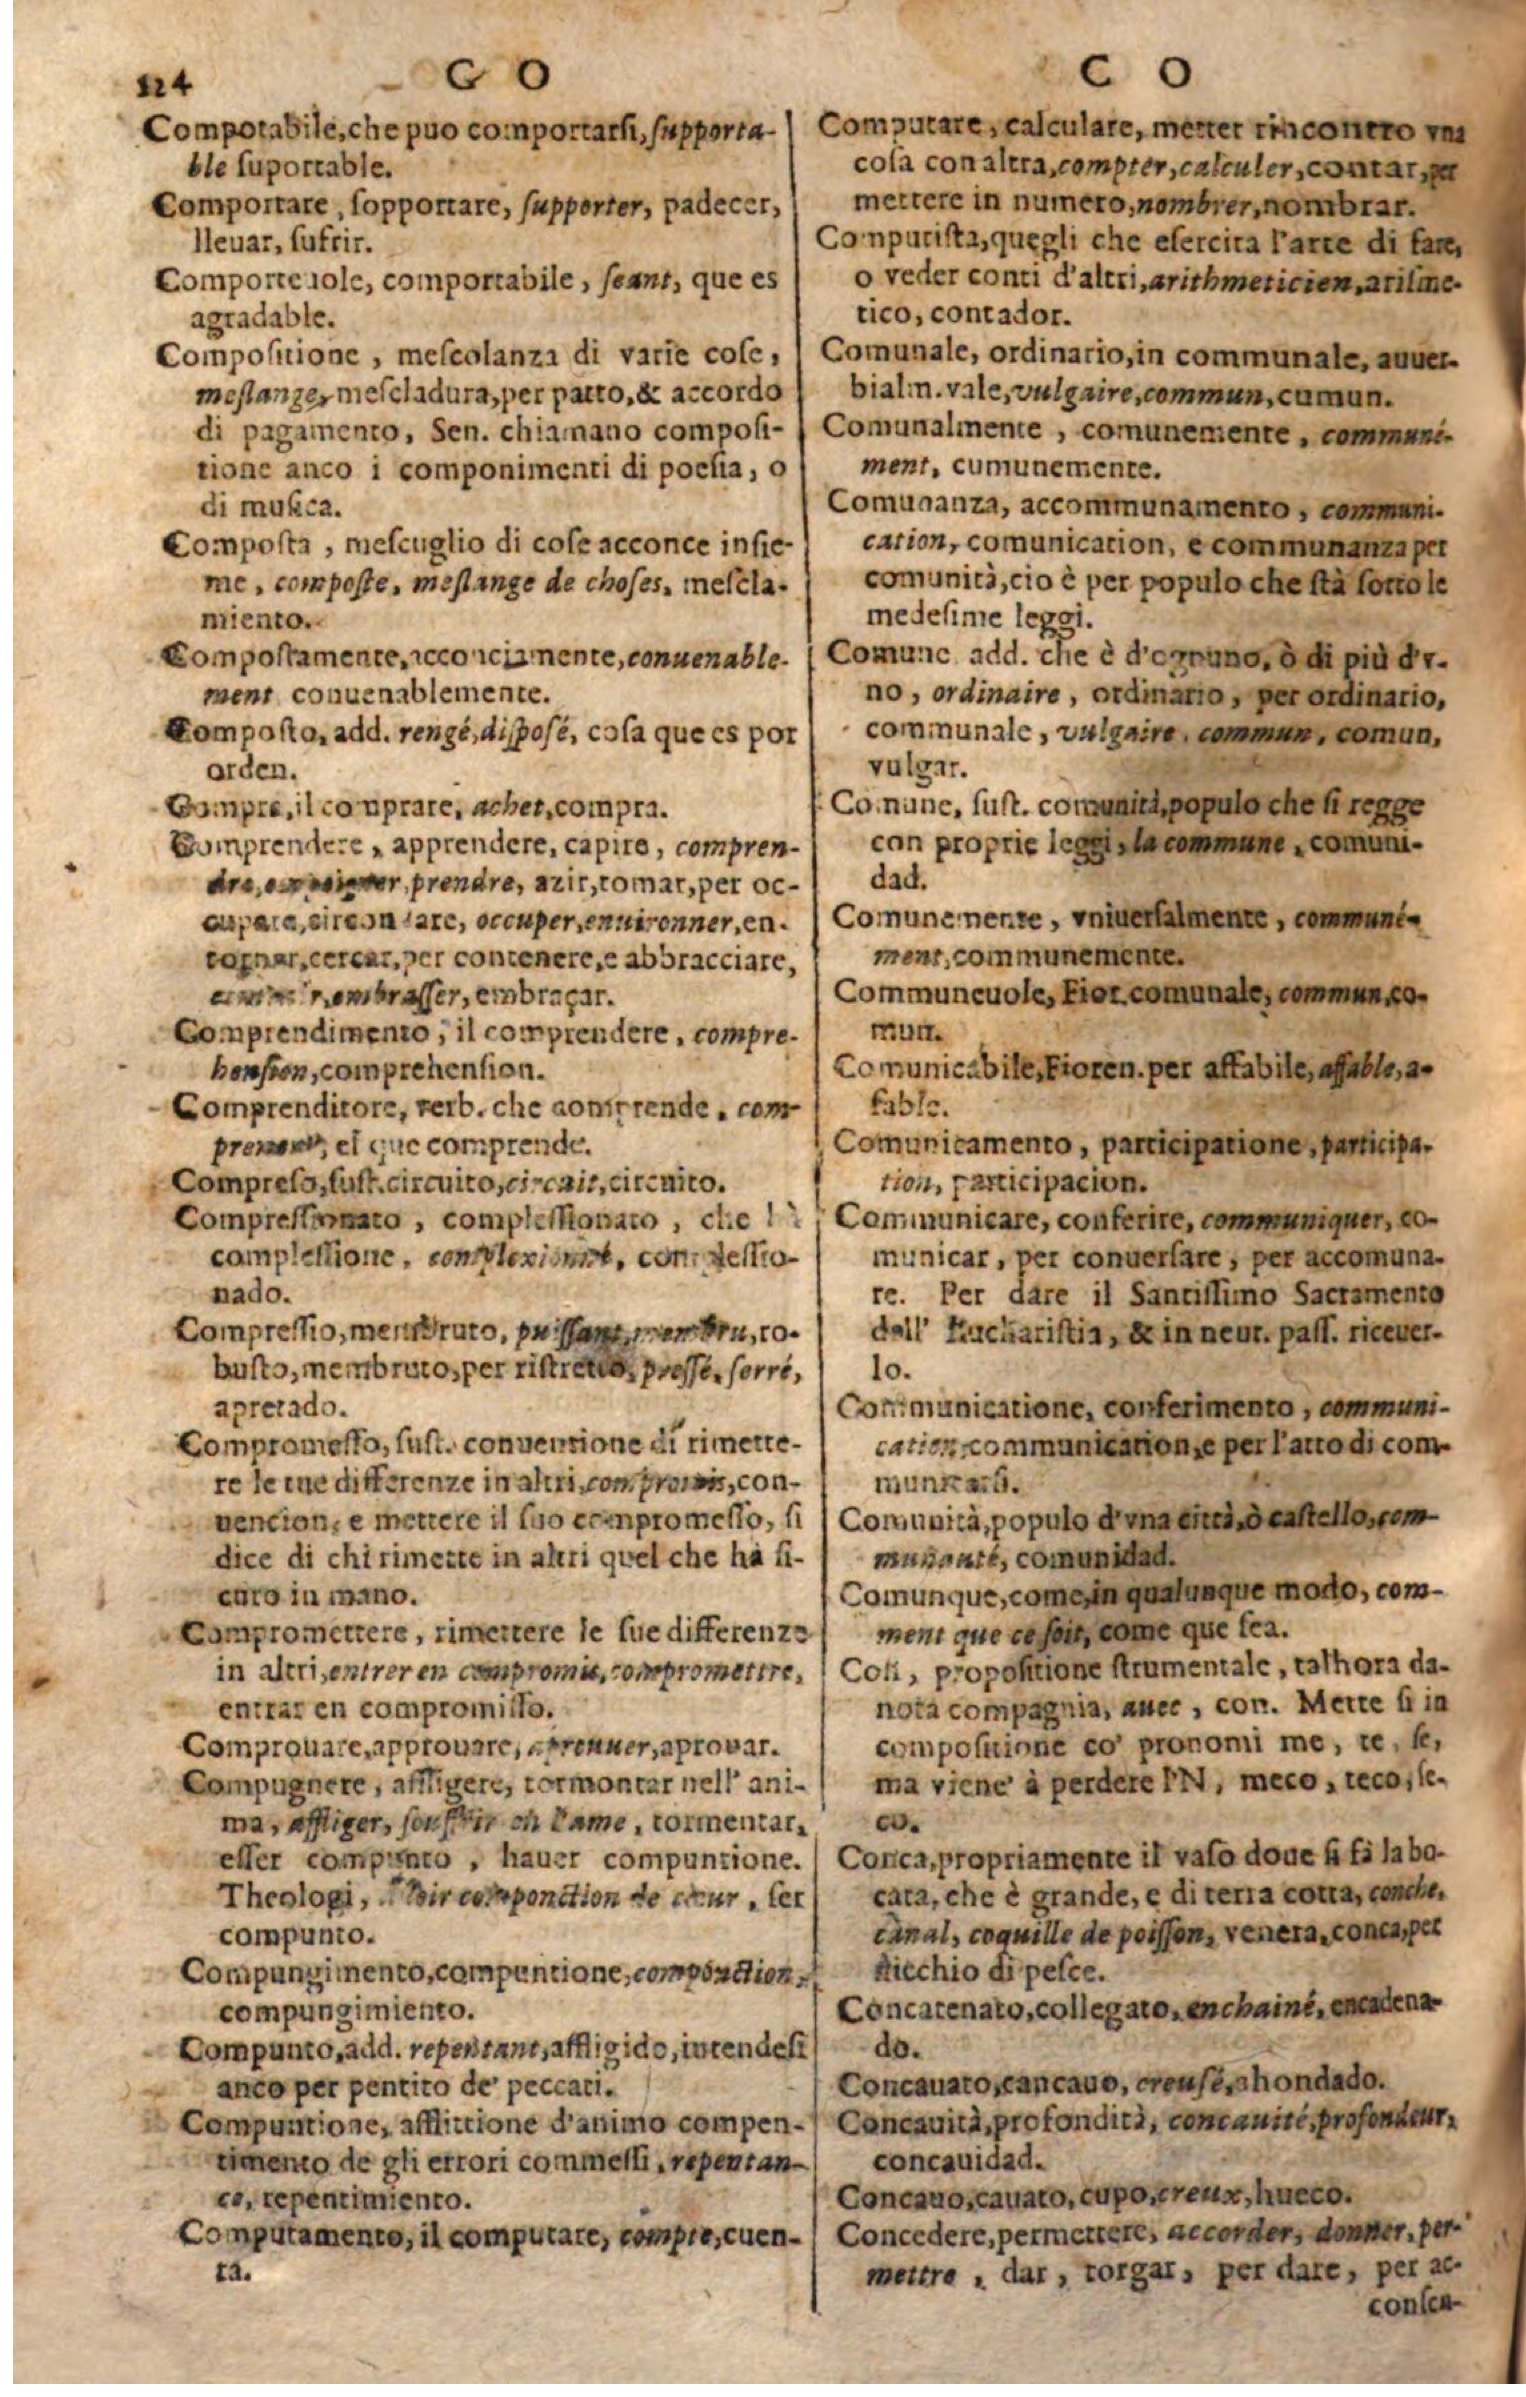 124
G O
Compotabile, che puo comportarsi, supporta-
ble suportable.
Comportare, sopportare, supporter, padecer,
lleuar, sufrir.
Comporteuole, comportabile, seant, que es
agradable.
Compositione, mescolanza di varie cose,
meslange, mescladura, per patto, & accordo
di pagamento, Sen. chiamano composi-
tione anco i componimenti di poesia, o
di musica.
Composta, mescuglio di cose acconce insie-
me, composte, meslange de choses, mescla-
miento.
Compostamente, acconciamente, conuenable-
ment conuenablemente.
Composto, add. rengé, disposé, cosa que es por
orden.
Compra, il comprare, achet, compra.
Comprendere, apprendere, capire, compren-
dre, prendre, azir, tomar, per oc-
cupare, circondare, occuper, enuironner, en-
tornar, cercar, per contenere, e abbracciare,
embrasser, embraçar.
Comprendimento, il comprendere, compre-
hension, comprehension.
Comprenditore, verb. che comprende, com-
prenant, el que comprende.
Compreso, sust. circuito, circuit, circuito.
Compressionato, complessionato, che hà
complessione, complexionné, complessio-
nado.
Compressio, membruto, puissant, membru, ro-
busto, membruto, per ristretto, pressé, serré,
apretado.
Compromesso, sust. conuentione di rimette-
re le tue differenze in altri, compromis, con-
uencion, e mettere il suo compromesso, si
dice di chi rimette in altri quel che hà si-
curo in mano.
Compromettere, rimettere le sue differenze
in altri, entrer en compromis, compromettre,
entrar en compromisso.
Comprouare, approuare, apreuuer, aprouar.
Compugnere, affligere, tormontar nell' ani-
ma, affliger, souffrir en l'ame, tormentar,
esser compunto, hauer compuntione.
Theologi, componction de cœur, ser
compunto.
Compungimento, compuntione, componction,
compungimiento.
Compunto, add. repentant, affligido, intendesi
anco per pentito de' peccati.
Compuntione, afflittione d'animo compen-
timento de gli errori commessi, repentan-
ce, repentimiento.
Computamento, il computare, compte, cuen-
ta.
C O
Computare, calculare, metter rincontro vna
cosa con altra, compter, calculer, contar, per
mettere in numero, nombrer, nombrar.
Computista, quegli che esercita l'arte di fare,
o veder conti d'altri, arithmeticien, arisme-
tico, contador.
Comunale, ordinario, in communale, auuer-
bialm. vale, vulgaire, commun, cumun.
Comunalmente, comunemente, communé-
ment, cumunemente.
Comunanza, accommunamento, communi-
cation, comunication, e communanza per
comunità, cio è per populo che stà sotto le
medesime leggi.
Comune add. che è d'ognuno, ò di più d'v-
no, ordinaire, ordinario, per ordinario,
communale, vulgaire, commun, comun,
vulgar.
Comune, sust. comunità, populo che si regge
con proprie leggi, la commune, comuni-
dad.
Comunemente, vniuersalmente, communé-
ment, communemente.
Communeuole, Fior. comunale, commun, co-
mun.
Comunicabile, Fioren. per affabile, affable, a-
fable.
Comunicamento, participatione, participa-
tion, participacion.
Communicare, conferire, communiquer, co-
municar, per conuersare, per accomuna-
re. Per dare il Santissimo Sacramento
dell' Eucharistia, & in neut. pass. riceuer-
lo.
Communicatione, conferimento, communi-
cation, communication, e per l'atto di com-
municarsi.
Comunità, populo d'vna città, ò castello, com-
munauté, comunidad.
Comunque, come, in qualunque modo, com-
ment que ce soit, come que sea.
Con, propositione strumentale, talhora da-
nota compagnia, auec, con. Mette si in
compositione co' pronomi me, te, se,
ma viene à perdere l'N, meco, teco, se-
co.
Conca, propriamente il vaso doue si fà la bo-
cata, che è grande, e di terra cotta, conche,
canal, coquille de poisson, venera, conca, per
nicchio di pesce.
Concatenato, collegato, enchainé, encadena-
do.
Concauato, cancauo, creusé, ahondado.
Concauità, profondità, concauité, profondeur,
concauidad.
Concauo, cauato, cupo, creux, hueco.
Concedere, permettere, accorder, donner, per-
mettre, dar, torgar, per dare, per ac-
consen-